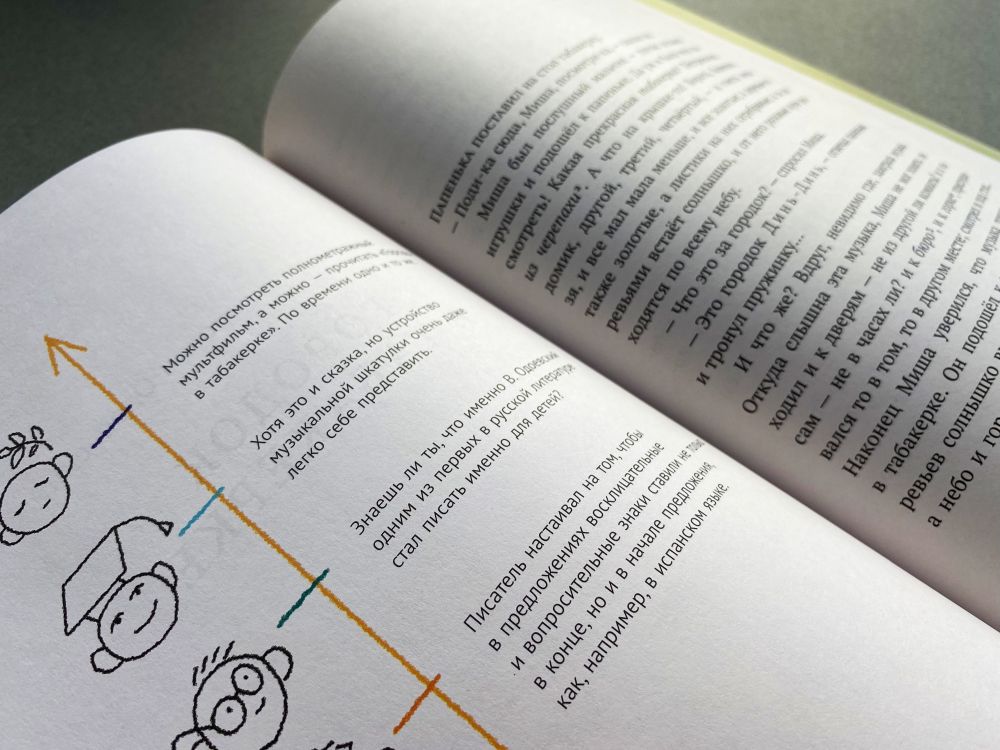 Можно посмотреть полнометражный
мультфильм, а можно — прочитать
в табакерке». По времени одно и то же
Хотя это и сказка, но устройство
музыкальной шкатулки очень даже
легко себе представить.
Знаешь ли ты, что именно В. Одоевский
одним из первых в русской литературе
стал писать именно для детей?
Писатель настаивал на том, чтобы
в предложениях восклицательные
и вопросительные знаки ставили не только
в конце, но и в начале предложения,
как, например, в испанском языке.
ПАПЕНЬКА ПОСТАВИЛ НА СТОЛ табакерку.
— Поди-ка сюда, Миша, посмотри-ка, —
Миша был послушный мальчик —
игрушки и подошёл к папеньке. Да уж и было
смотреть! Какая прекрасная табакерка!
из черепахи³. А что на крышке-то!
домик, другой, третий, четвёртый, —
зя, и все мал мала меньше, и все золотые;
также золотые, а листики на них серебряные;
ревьями встаёт солнышко, и от него розовые лучи
ходятся по всему небу.
— Что это за городок? — спросил Миша.
— Это городок Динь-Динь, — отвечал папенька
и тронул пружинку...
И что же? Вдруг, невидимо где, заиграла музыка.
Откуда слышна эта музыка, Миша не мог понять;
ходил и к дверям — не из другой ли комнаты?
сам — не в часах ли? и к бюро², и к горке;
вался то в том, то в другом месте; смотрел и
Наконец Миша уверился, что музыка
в табакерке. Он подошёл
ревьев солнышко
а небо и